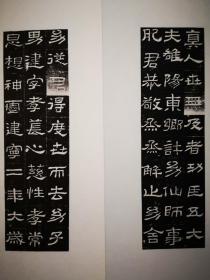 真人世無及者功臣五大
夫雒陽東鄉許幼仙師事
肥君恭敬烝烝解止幼舍
幼從君得度世而去幼子
男建字孝萇心慈性孝常
思想神靈建寧二年大歲